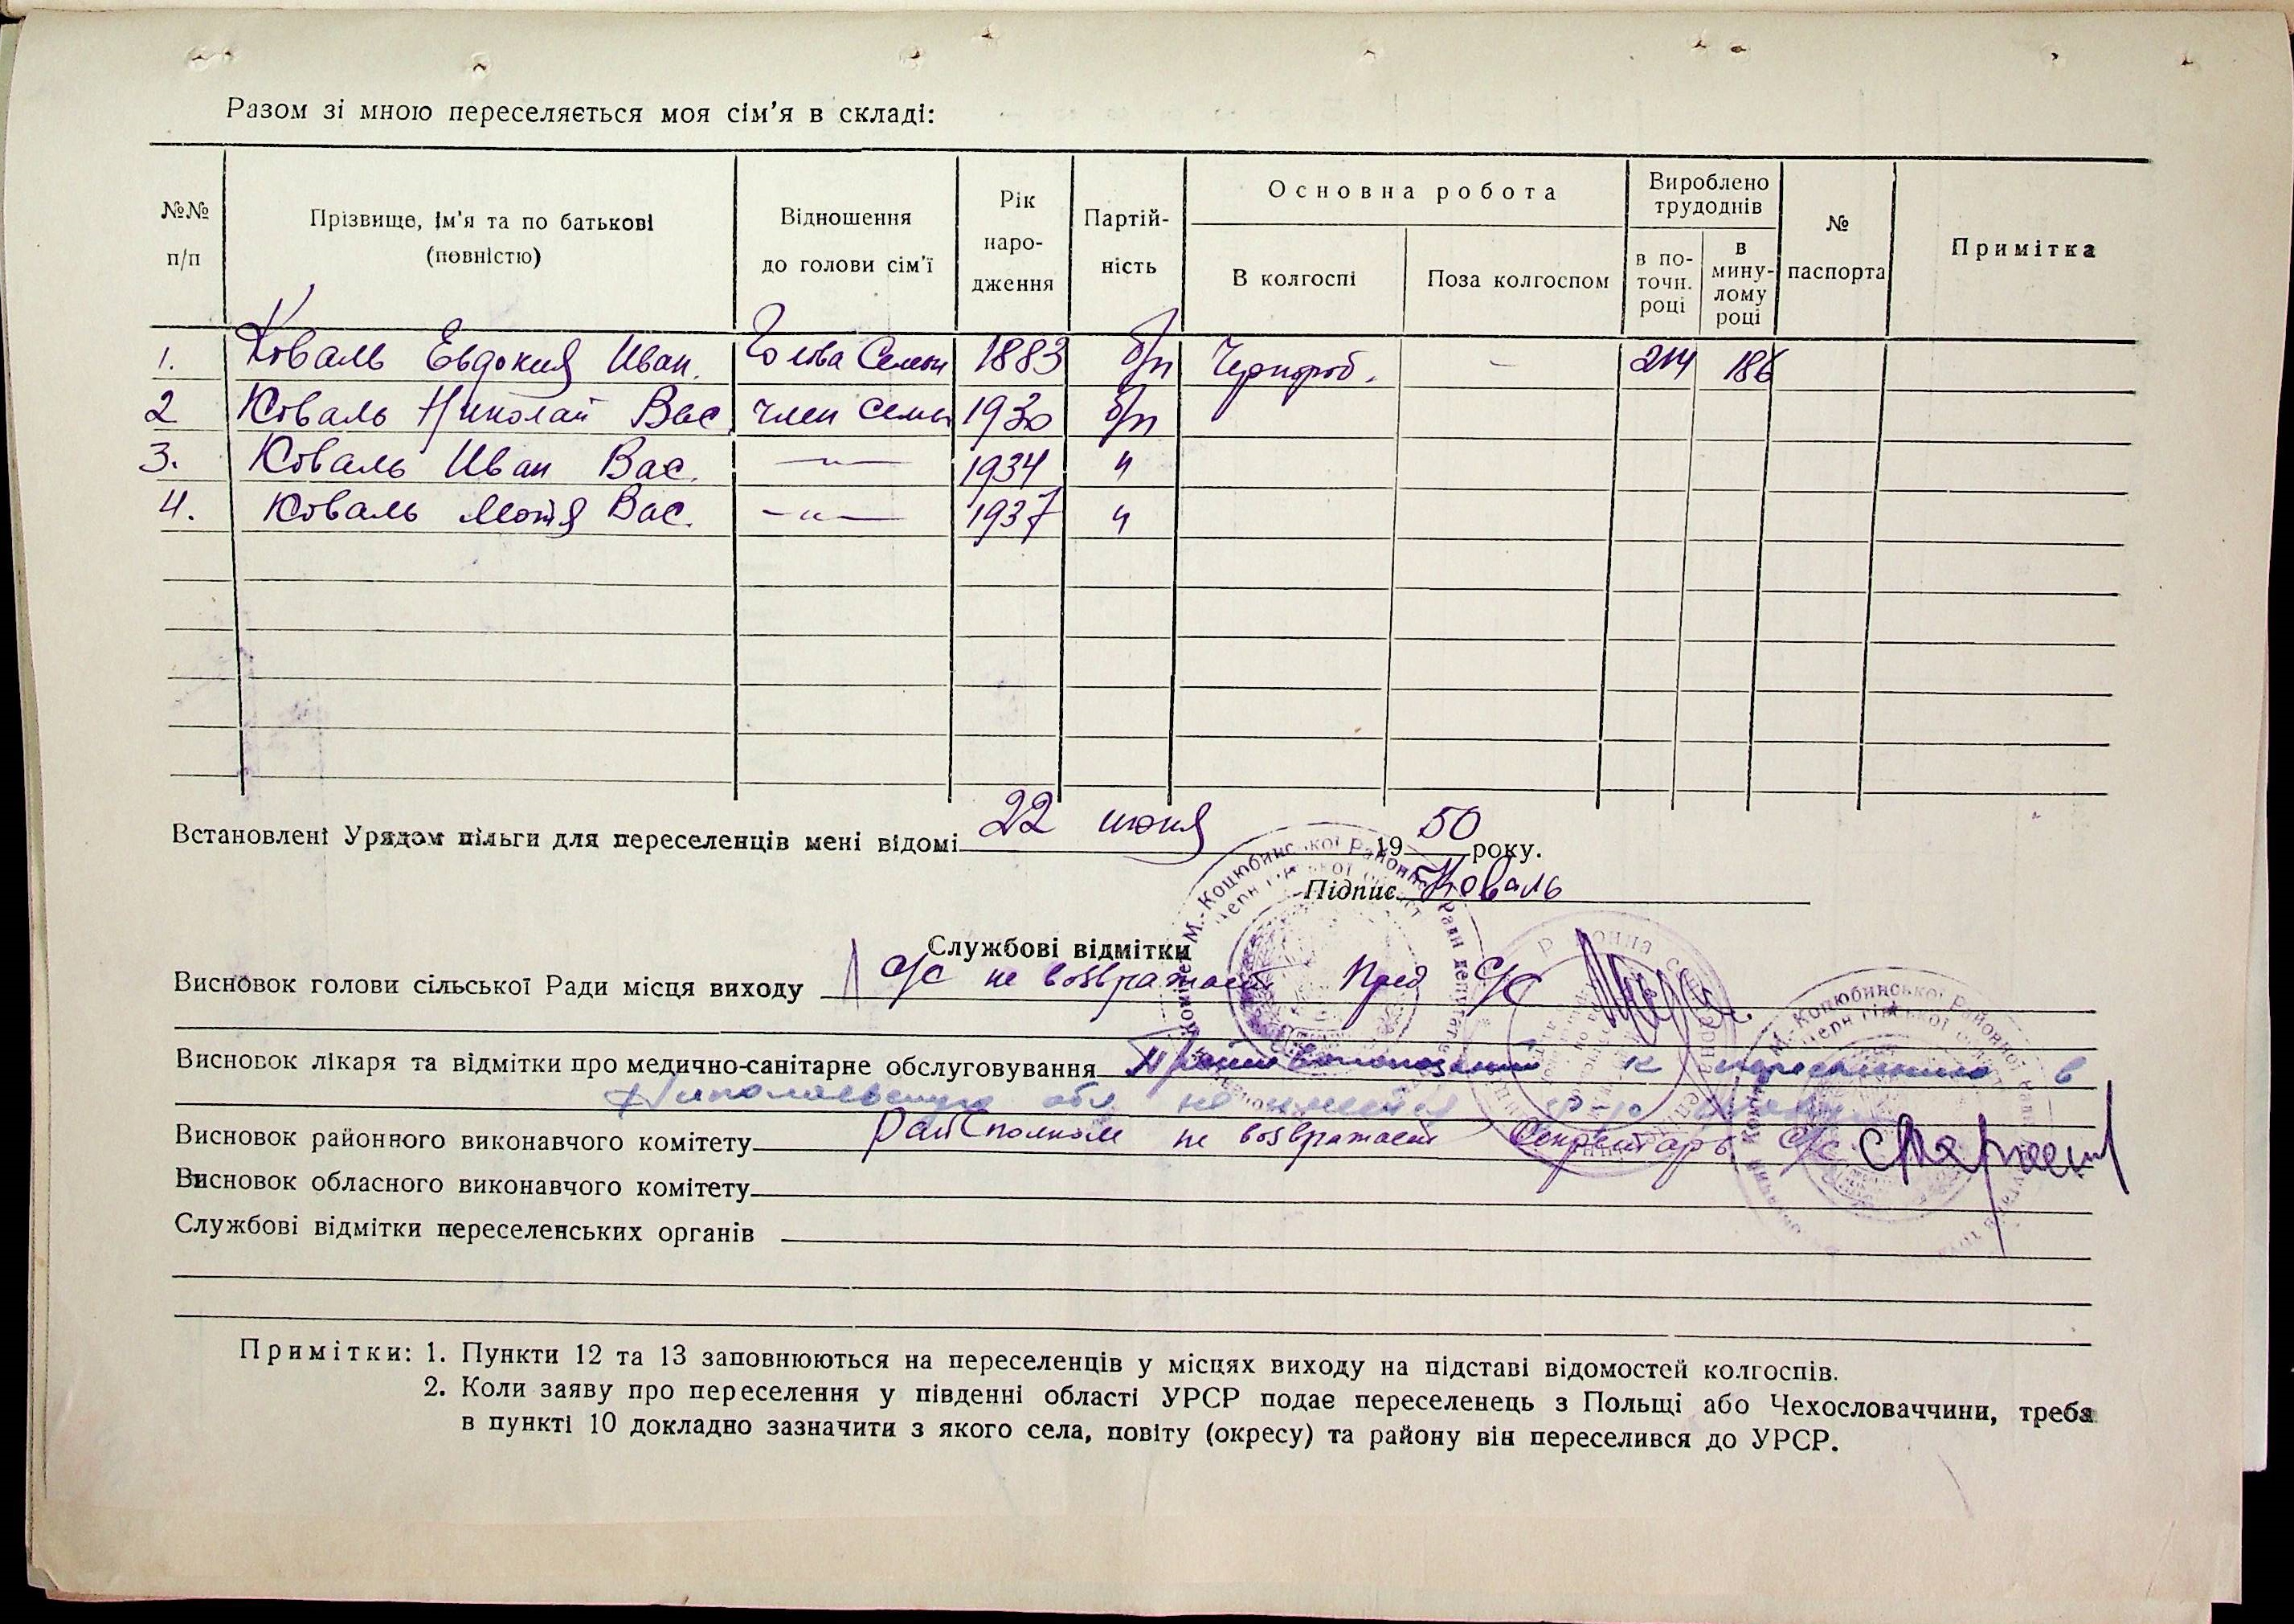 Разом зі мною переселяється моя сім'я в складі:
№№ п/п
Прізвище, ім'я та по батькові (повністю)
Відношення до голови сім'ї
Рік наро- дження
Партій- ність
Основна робота
В колгоспі
Поза колгоспом
Вироблено трудоднів
в по- точн. році
в мину- лому році
№ паспорта
Примітка
1. Коваль Евдокия Иван. Голова Семьи 1883 б/п Чернороб. — 214 186
2 Коваль Николай Вас. член семьи 1930 б/п
3. Коваль Иван Вас. —"— 1934 "
4. Коваль Мотя Вас. —"— 1937 "
Встановлені Урядом пільги для переселенців мені відомі 22 июня 1950 року.
Підпис Коваль
Службові відмітки
Висновок голови сільської Ради місця виходу с/с не возвражает Пред с/с
Висновок лікаря та відмітки про медично-санітарне обслуговування к переселению в
Николаевскую обл не имеется
Висновок районного виконавчого комітету Райсполком не возвражает Секретарь с/с
Висновок обласного виконавчого комітету
Службові відмітки переселенських органів
Примітки: 1. Пункти 12 та 13 заповнюються на переселенців у місцях виходу на підставі відомостей колгоспів.
2. Коли заяву про переселення у південні області УРСР подає переселенець з Польщі або Чехословаччини, треба
в пункті 10 докладно зазначити з якого села, повіту (окресу) та району він переселився до УРСР.